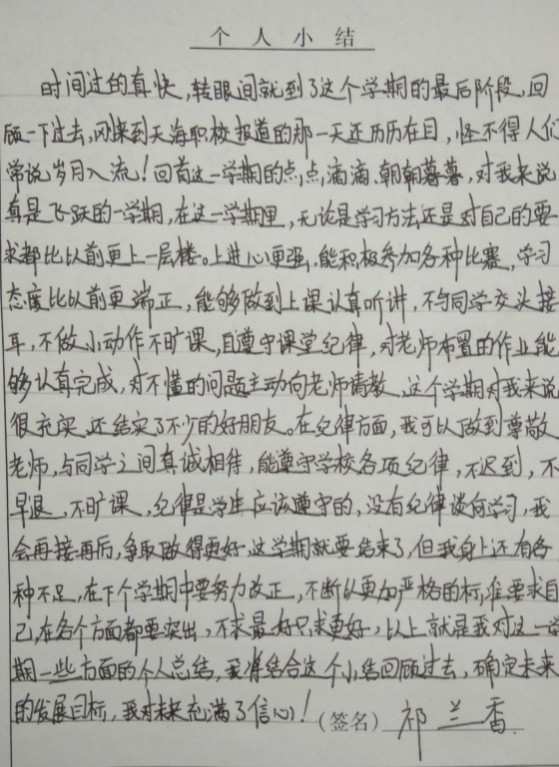 个人小结
时间过的真快,转眼间就到了这个学期的最后阶段,回
顾一下过去,刚来到天海职校报道的那一天还历历在目,怪不得人们
常说岁月入流!回首这一学期的点点滴滴、朝朝暮暮,对我来说
真是飞跃的一学期,在这一学期里,无论是学习方法还是对自己的要
求都比以前更上一层楼。上进心更强,能积极参加各种比赛,学习
态度比以前更端正,能够做到上课认真听讲,不与同学交头接
耳,不做小动作不旷课,且遵守课堂纪律,对老师布置的作业能
够认真完成,对不懂的问题主动向老师请教,这个学期对我来说
很充实,还结实了不少的好朋友。在纪律方面,我可以做到尊敬
老师,与同学之间真诚相待,能遵守学校各项纪律,不迟到,不
早退,不旷课,纪律是学生应该遵守的,没有纪律谈何学习,我
会再接再后,争取做得更好,这学期就要结束了,但我身上还有各
种不足,在下个学期中要努力改正,不断以更加严格的标准要求自
己,在各个方面都要突出,不求最好只求更好,以上就是我对这一学
期一些方面的个人总结,我将结合这个小结回顾过去,确定未来
的发展目标,我对未来充满了信心!(签名)祁兰香